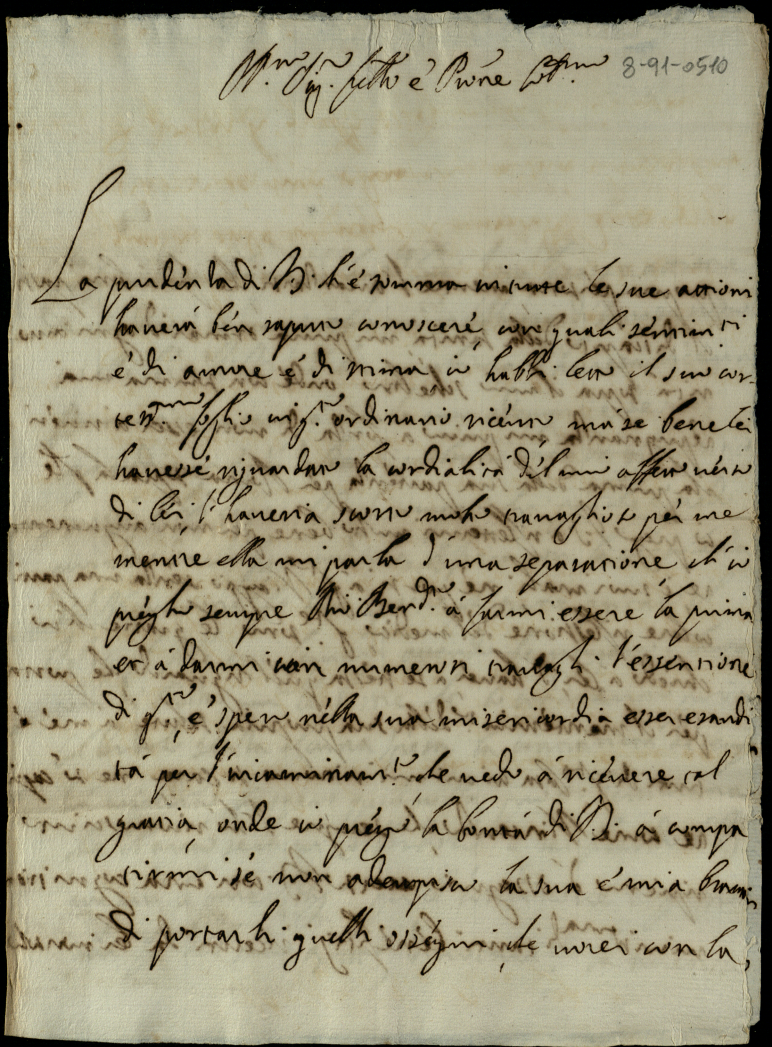 Ill.mo Sig.r fratello è Pñne Col.mo 8-91-0510
La prudénza di V.S. ch'é somma in tutte le sue attioni
haverà bén saputo conoscere con quali séntim.ti
é di amore é di stima io habbi letto il suo cor-
tes.mo foglio q.sto ordinario ricéuto mà se bene lei
havessé riguardato la cordialità dél mio affetto vérso
di léi, l'haveria scorto molto travaglioso pér me
mentre ella mi parla d'una separatione ch'io
prégho sempre Dio Bened.to à farmi essere la prima
et à darmi nei numerosi travagli l'essentione
di q.sto, é spero nélla sua misericordia esser esaudi
tà per l'incaminam.to che vedo à ricévere tal
gratia, onde io prégo la bontà di V.S. à compa
tirmi sé non adempisco la sua é mia brama
di portarli quelli osséqui che vorei con la,